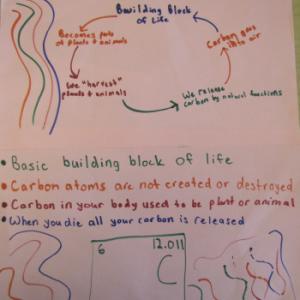 Bwilding Block
of Life
Becomes part
of plants + animals
Carbon goes
into air
We "harvest"
plants + animals
We release
carbon by natural functions
• Basic building block of life
• Carbon atoms are not created or destroyed
• Carbon in your body used to be plant or animal
• When you die all your carbon is released
6
12.011
C